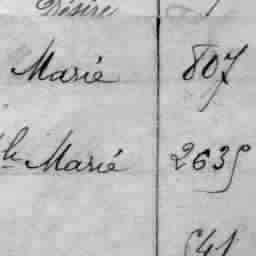 Désiré
Marié 807
le Marié 2635
541